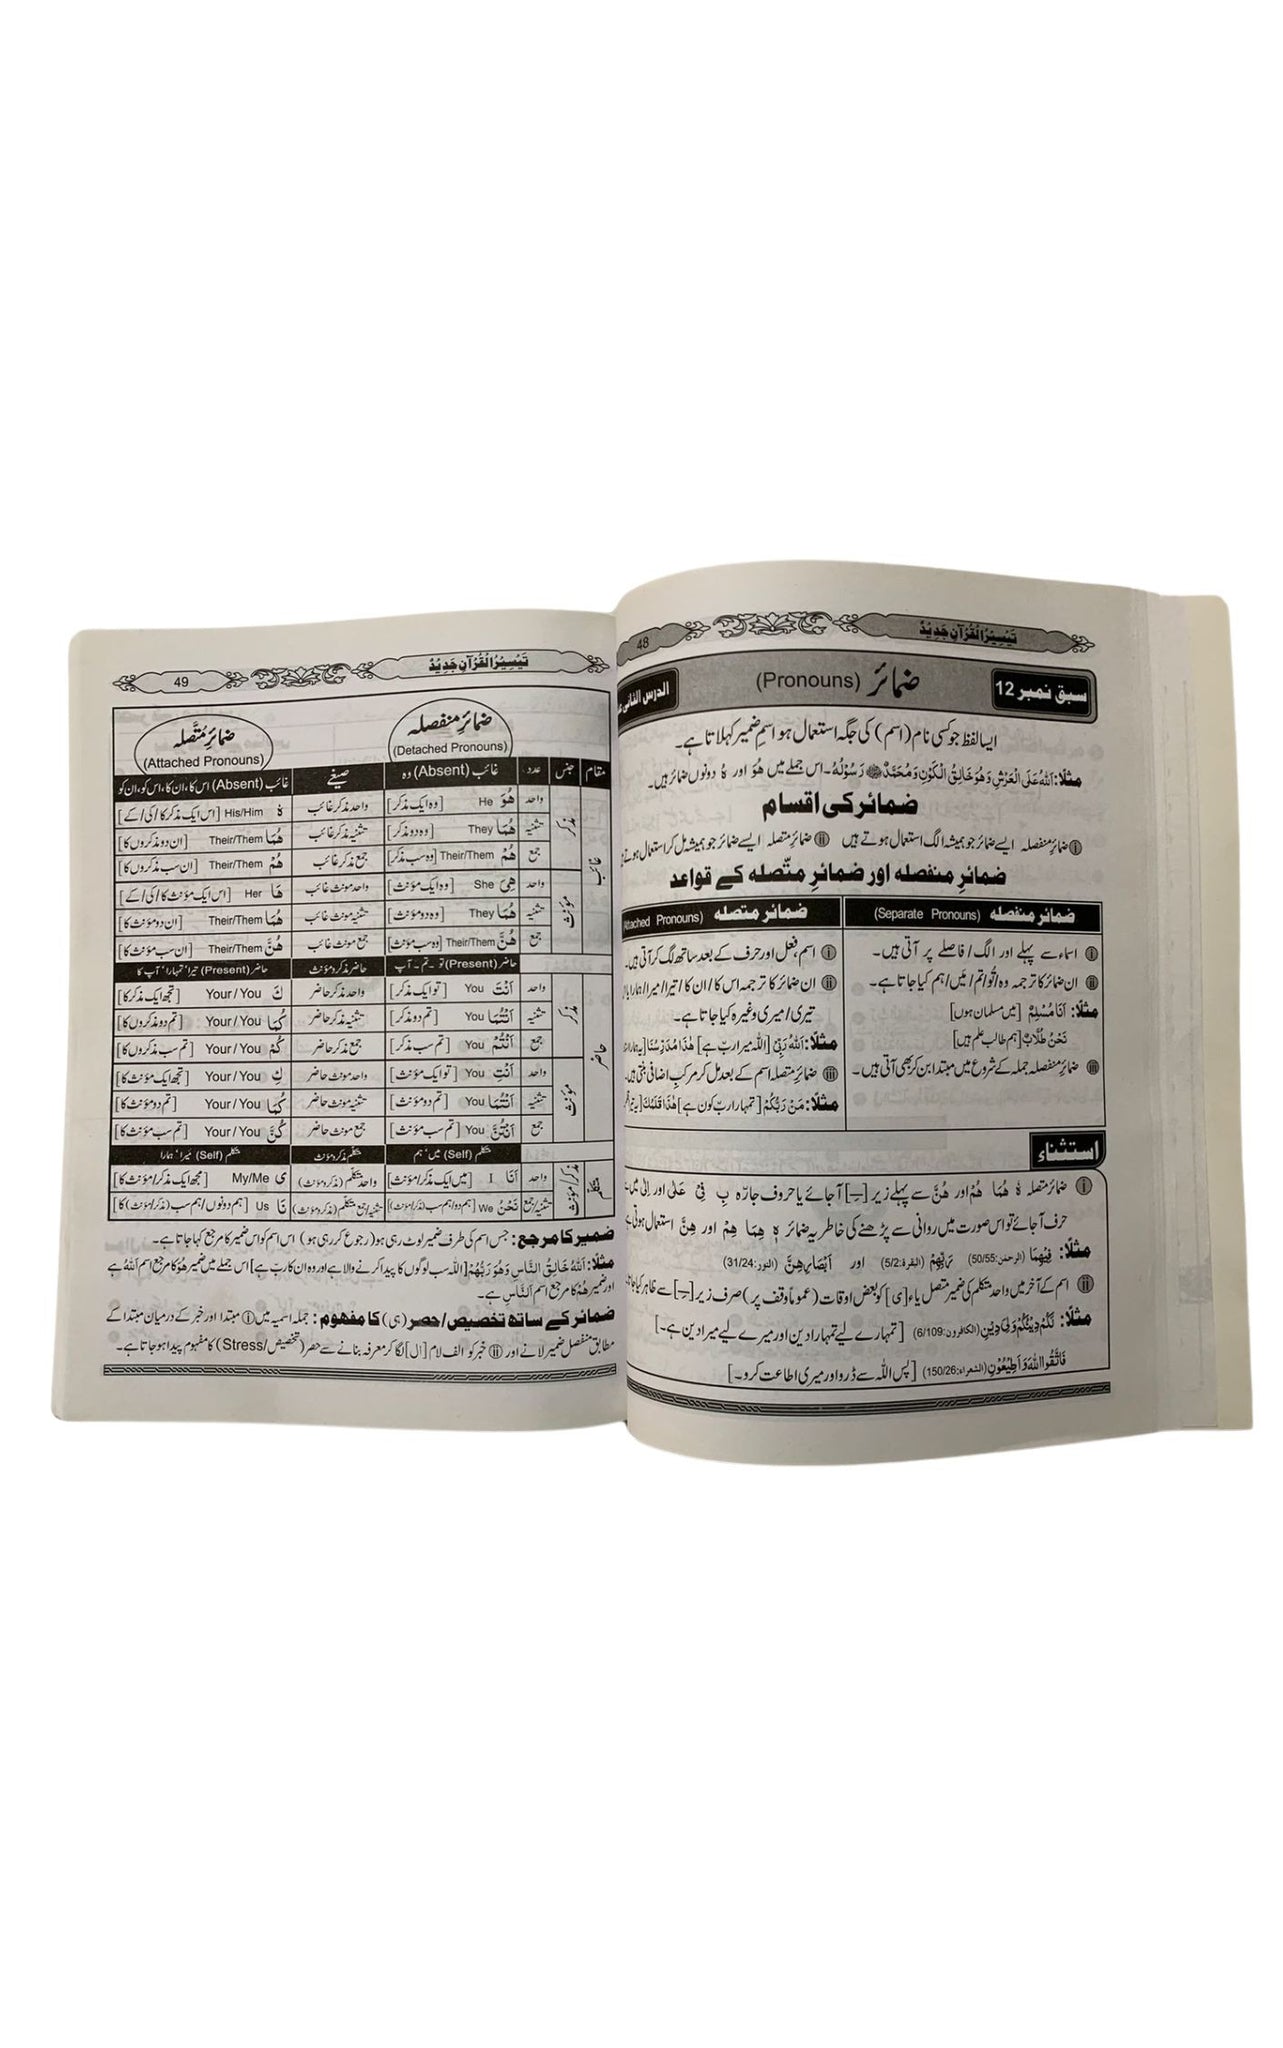 48
تَيْسِيْرُ الْقُرْآنِ جَدِيْدٌ
سبق نمبر 12
ضمائر (Pronouns)
الدرس الثانی
ایسا لفظ جو کسی نام (اسم) کی جگہ استعمال ہو اسمِ ضمیر کہلاتا ہے۔
مثلًا: اَللهُ عَلَى الْعَرْشِ وَهُوَ خَالِقُ الْكَوْنِ وَمُحَمَّدٌ ﷺ رَسُوْلُهٗ۔ اس جملے میں هُوَ اور هٗ دونوں ضمائر ہیں۔
ضمائر کی اقسام
ⓘ ضمائرِ منفصلہ ایسے ضمائر جو ہمیشہ الگ استعمال ہوتے ہیں ⓘⓘ ضمائرِ متصلہ ایسے ضمائر جو ہمیشہ مل کر استعمال ہوتے
ضمائرِ منفصلہ اور ضمائرِ متّصلہ کے قواعد
ضمائر منفصلہ (Separate Pronouns)
i اسماء سے پہلے اور الگ/ فاصلے پر آتی ہیں۔
ii ان ضمائر کا ترجمہ وہ/تُو/تم/میں/ہم کیا جاتا ہے۔
مثلًا: اَنَا مُسْلِمٌ [میں مسلمان ہوں]
نَحْنُ طُلَّابٌ [ہم طالب علم ہیں]
iii ضمائر منفصلہ جملہ کے شروع میں مبتدا بن کر بھی آتی ہیں۔
ضمائر متصلہ (Attached Pronouns)
i اسم، فعل اور حرف کے بعد ساتھ لگ کر آتی ہیں۔
ii ان ضمائر کا ترجمہ اس کا/ان کا/تیرا/میرا/ہمارا
تیری/میری وغیرہ کیا جاتا ہے۔
مثلًا: اَللهُ رَبِّيْ [اللہ میرا رب ہے] هٰذَا مُدَرِّسُنَا
iii ضمائر متصلہ اسم کے بعد مل کر مرکب اضافی بنتی ہیں۔
مثلًا: مَنْ رَبُّكُمْ [تمہارا رب کون ہے] هٰذَا قَلَمُكَ
استثناء
i ضمائر متصلہ هٗ هُمَا هُمْ اور هُنَّ سے پہلے زیر [ــِـ] آ جائے یا حروف جارّہ بِ فِيْ عَلٰى اور اِلٰى میں سے
حرف آ جائے تو اس صورت میں روانی سے پڑھنے کی خاطر یہ ضمائر هٖ هِمَا هِمْ اور هِنَّ استعمال ہوتی
مثلًا: فِيْهِمَا (الرحمٰن:50/55) رَبِّهِمْ (البقرة:5/2) اور اَبْصَارِهِنَّ (النور:31/24)
ii اسم کے آخر میں واحد متکلم کی ضمیر متصل یاء [ی] کو بعض اوقات (عموماً وقف پر) صرف زیر [ــِـ] سے ظاہر کیا جاتا
مثلًا: لَكُمْ دِيْنُكُمْ وَلِيَ دِيْنِ (الكافرون:6/109) [تمہارے لیے تمہارا دین اور میرے لیے میرا دین ہے۔]
فَاتَّقُوا اللهَ وَاَطِيْعُوْنِ (الشعراء:150/26) [پس اللہ سے ڈرو اور میری اطاعت کرو۔]
49
تَيْسِيْرُ الْقُرْآنِ جَدِيْدٌ
ضمائرِ منفصلہ (Detached Pronouns)
ضمائرِ متَّصلہ (Attached Pronouns)
مقام جنس عدد غائب (Absent) وہ صیغے غائب (Absent) اس کا، ان کا، اس کو، ان کو
غائب مذکر واحد هُوَ He [وہ ایک مذکر] واحد مذکر غائب هٗ His/Him [اس ایک مذکر کا/کی/کے]
تثنیہ هُمَا They [وہ دو مذکر] تثنیہ مذکر غائب هُمَا Their/Them [ان دو مذکروں کا]
جمع هُمْ Their/Them [وہ سب مذکر] جمع مذکر غائب هُمْ Their/Them [ان سب مذکروں کا]
مؤنث واحد هِيَ She [وہ ایک مؤنث] واحد مونث غائب هَا Her [اس ایک مؤنث کا/کی/کے]
تثنیہ هُمَا They [وہ دو مؤنث] تثنیہ مونث غائب هُمَا Their/Them [ان دو مؤنث کا]
جمع هُنَّ Their/Them [وہ سب مؤنث] جمع مونث غائب هُنَّ Their/Them [ان سب مؤنث کا]
حاضر (Present) تو۔تم۔آپ حاضر مذکر و مؤنث حاضر (Present) تیرا، تمہارا، آپ کا
حاضر مذکر واحد اَنْتَ You [تو ایک مذکر] واحد مذکر حاضر كَ Your/You [تجھ ایک مذکر کا]
تثنیہ اَنْتُمَا You [تم دو مذکر] تثنیہ مذکر حاضر كُمَا Your/You [تم دو مذکروں کا]
جمع اَنْتُمْ You [تم سب مذکر] جمع مذکر حاضر كُمْ Your/You [تم سب مذکروں کا]
مؤنث واحد اَنْتِ You [تو ایک مؤنث] واحد مونث حاضر كِ Your/You [تجھ ایک مؤنث کا]
تثنیہ اَنْتُمَا You [تم دو مؤنث] تثنیہ مونث حاضر كُمَا Your/You [تم دو مؤنث کا]
جمع اَنْتُنَّ You [تم سب مؤنث] جمع مونث حاضر كُنَّ Your/You [تم سب مؤنث کا]
متکلم (Self) میں، ہم متکلم مذکر و مؤنث متکلم (Self) میرا، ہمارا
متکلم مذکر/مؤنث واحد اَنَا I [میں ایک مذکر/مؤنث] واحد متکلم (مذکر و مؤنث) ی My/Me [مجھ ایک مذکر/مؤنث کا]
تثنیہ/جمع نَحْنُ We [ہم دو/ہم سب (مذکر/مؤنث)] تثنیہ/جمع متکلم (مذکر و مؤنث) نَا Us [ہم دونوں/ہم سب (مذکر/مؤنث) کا]
ضمیر کا مرجع: جس اسم کی طرف ضمیر لوٹ رہی ہو (رجوع کر رہی ہو) اس اسم کو اس ضمیر کا مرجع کہا جاتا ہے۔
مثلًا: اَللهُ خَالِقُ النَّاسِ وَهُوَ رَبُّهُمْ [اللہ سب لوگوں کا پیدا کرنے والا ہے اور وہ ان کا رب ہے] اس جملے میں ضمیر هُوَ کا مرجع اسم اَللهُ ہے
اور ضمیر هُمْ کا مرجع اسم اَلنَّاسِ ہے۔
ضمائر کے ساتھ تخصیص/حصر (ہی) کا مفہوم: جملہ اسمیہ میں i مبتدا اور خبر کے درمیان مبتدا کے
مطابق منفصل ضمیر لانے اور ii خبر کو الف لام [ال] لگا کر معرفہ بنانے سے حصر (تخصیص/Stress) کا مفہوم پیدا ہو جاتا ہے۔